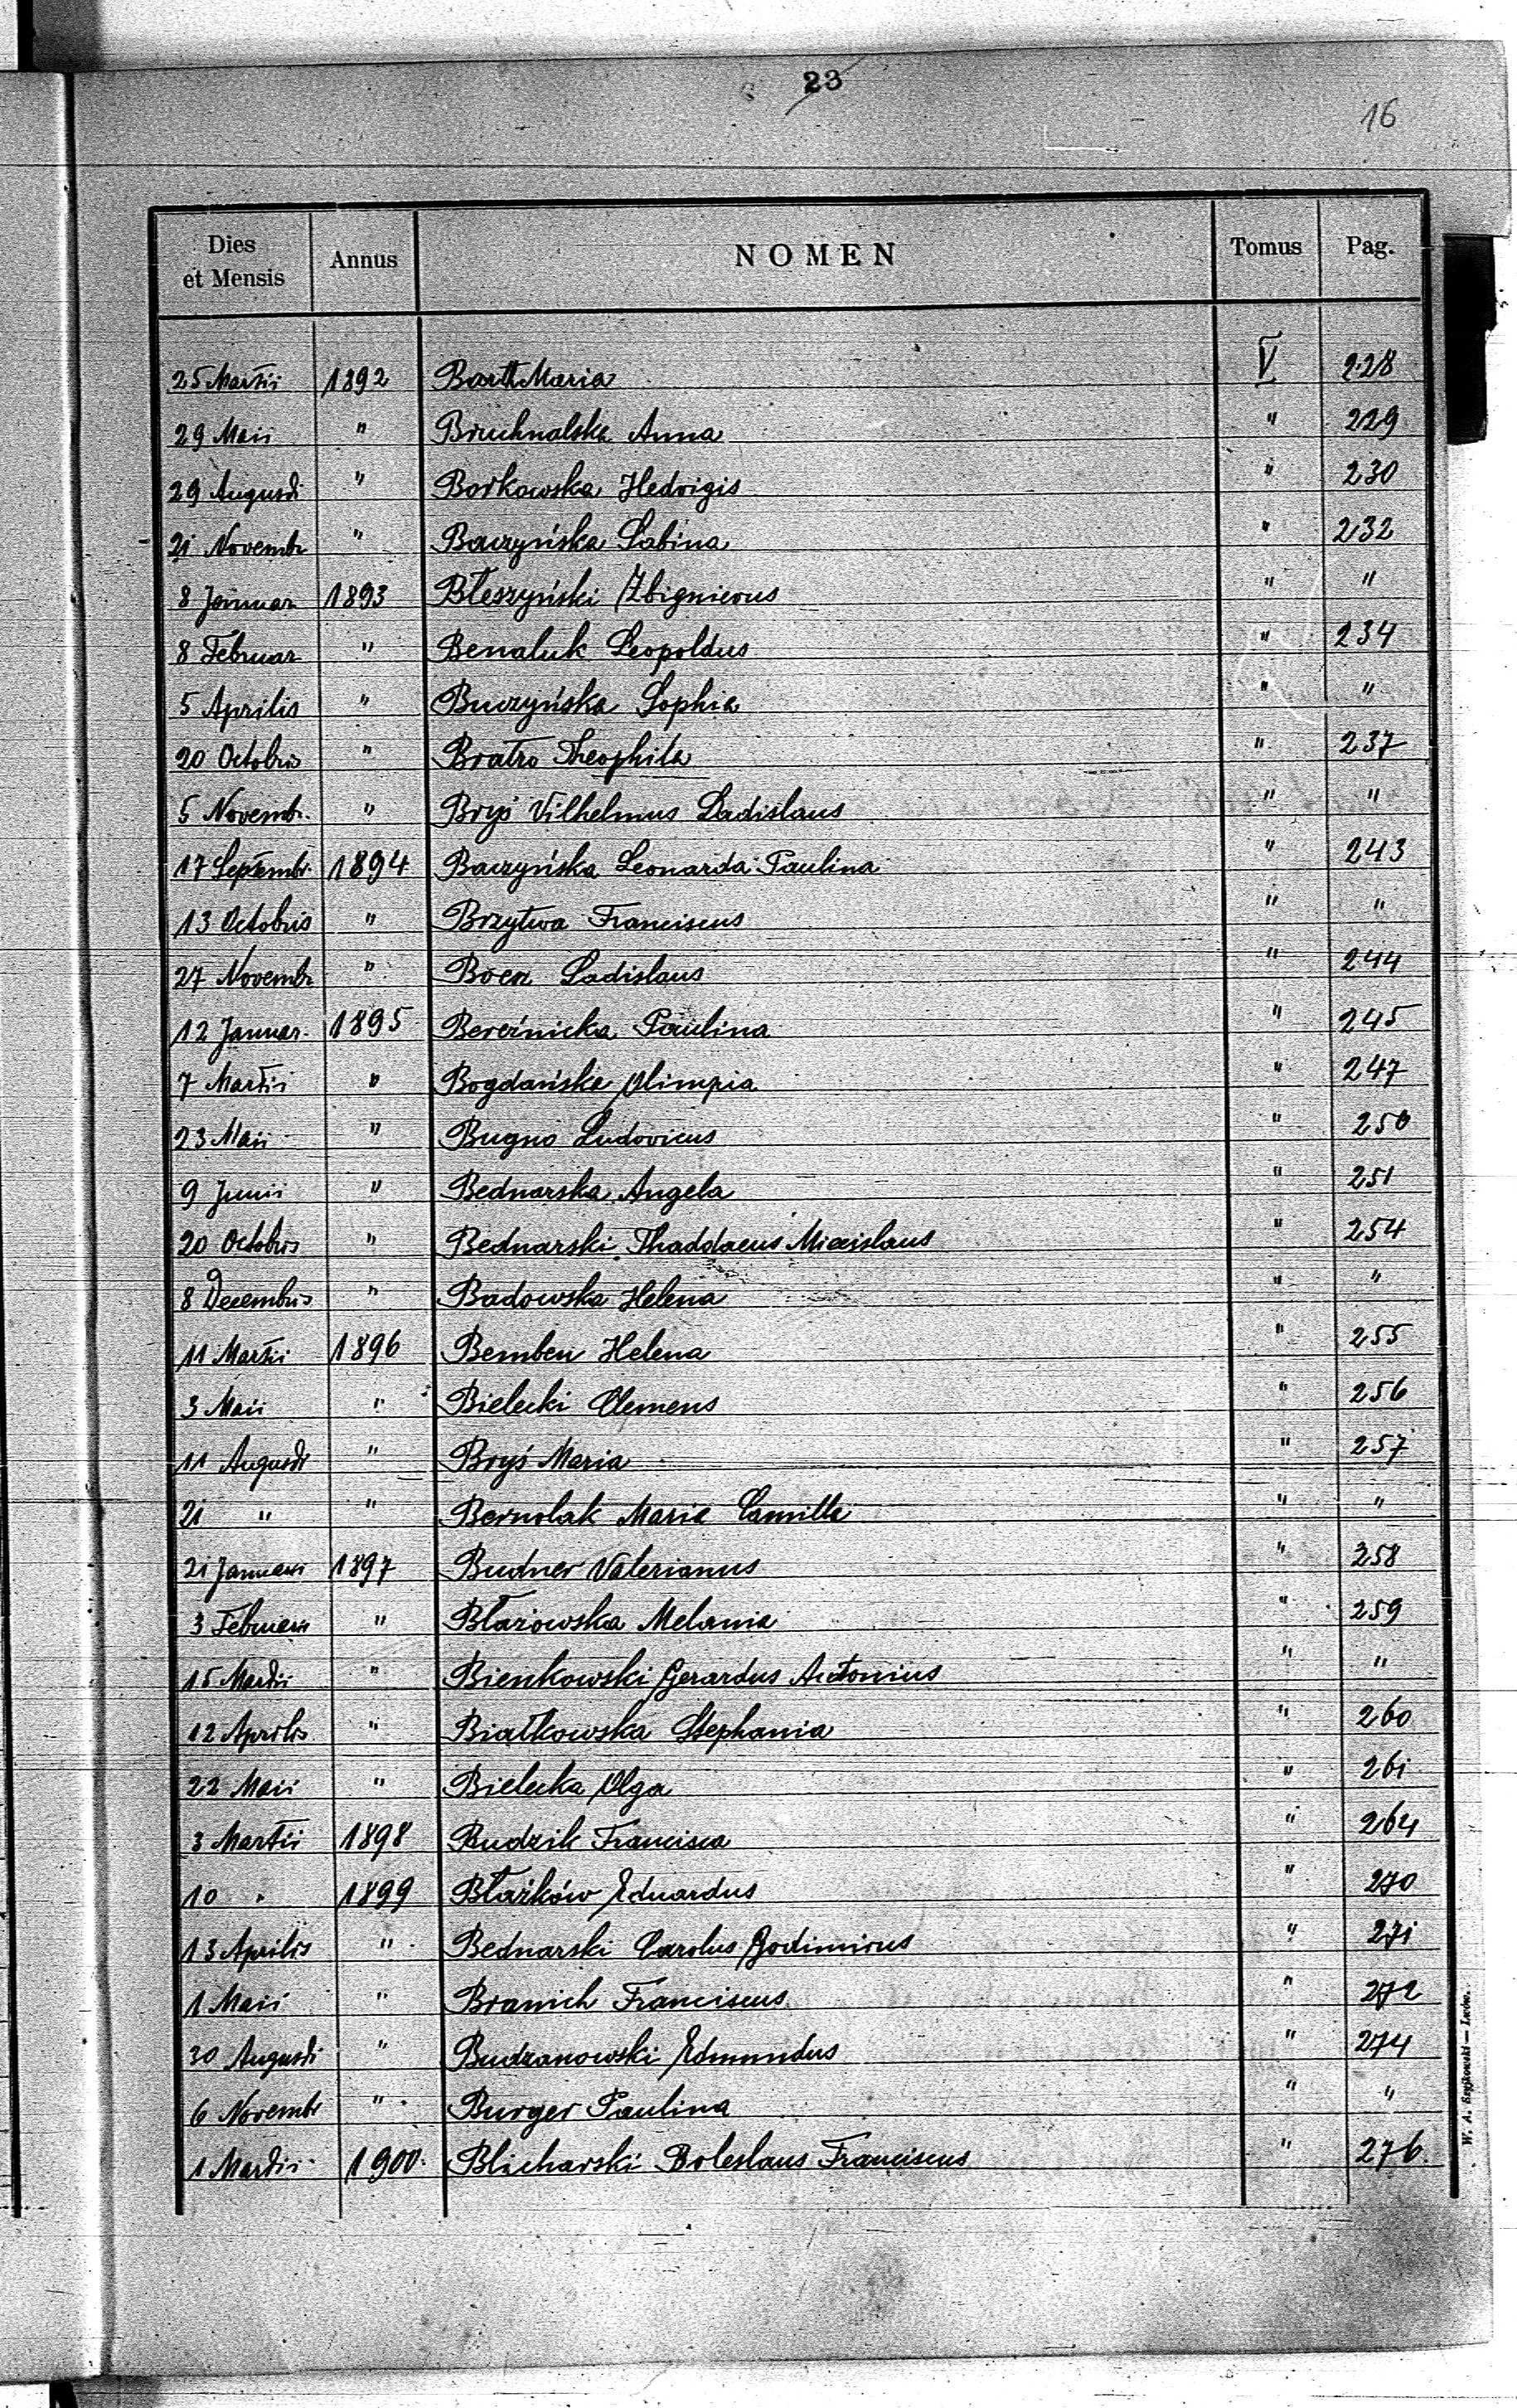 23
16
Dies et Mensis Annus NOMEN Tomus Pag.
25 Martii 1892 Barth Maria V 228
29 Maii " Bruchnalska Anna " 229
29 Augusti " Borkowska Hedvigis " 230
21 Novembr " Baczyńska Sabina " 232
8 Januar 1893 Błeszyński Zbignievus " "
8 Februar " Benaluk Leopoldus " 234
5 Aprilis " Buczyńska Sophia " "
20 Octobris " Bratro Theophila " 237
5 Novembr. " Bryś Vilhelmus Ladislaus " "
17 Septembr. 1894 Baczyńska Leonarda Paulina " 243
13 Octobris " Brzytwa Franciscus " "
27 Novembr " Ladislaus " 244
12 Januar. 1895 Bereźnicka Paulina " 245
7 Martii " Bogdańska Olimpia " 247
23 Maii " Bugno Ludovicus " 250
9 Junii " Bednarska Angela " 251
20 Octobris " Bednarski Thaddaeus Miecislaus " 254
8 Decembris " Badowska Helena " "
11 Martii 1896 Bemben Helena " 255
3 Maii " Bielecki Clemens " 256
11 Augusti " Bryś Maria " 257
21 " " Bernolak Maria Camilla " "
21 Januarii 1897 Budner Valerianus " 258
3 Februarii " Błażowska Melania " 259
15 Martii " Bienkowski Gerardus Antonius " "
12 Aprilis " Białkowska Stephania " 260
22 Maii " Bielecka Olga " 261
3 Martii 1898 Budzik Francisca " 264
10 " 1899 Błażków Eduardus " 270
13 Aprilis " Bednarski Carolus Godimirus " 271
1 Maii " Branich Franciscus " 272
30 Augusti " Budzanowski Edmundus " 274
6 Novembr " Burger Paulina " "
1 Martii 1900. Blicharski Boleslaus Franciscus " 276.
W. A. Szyjkowski — Lwów.